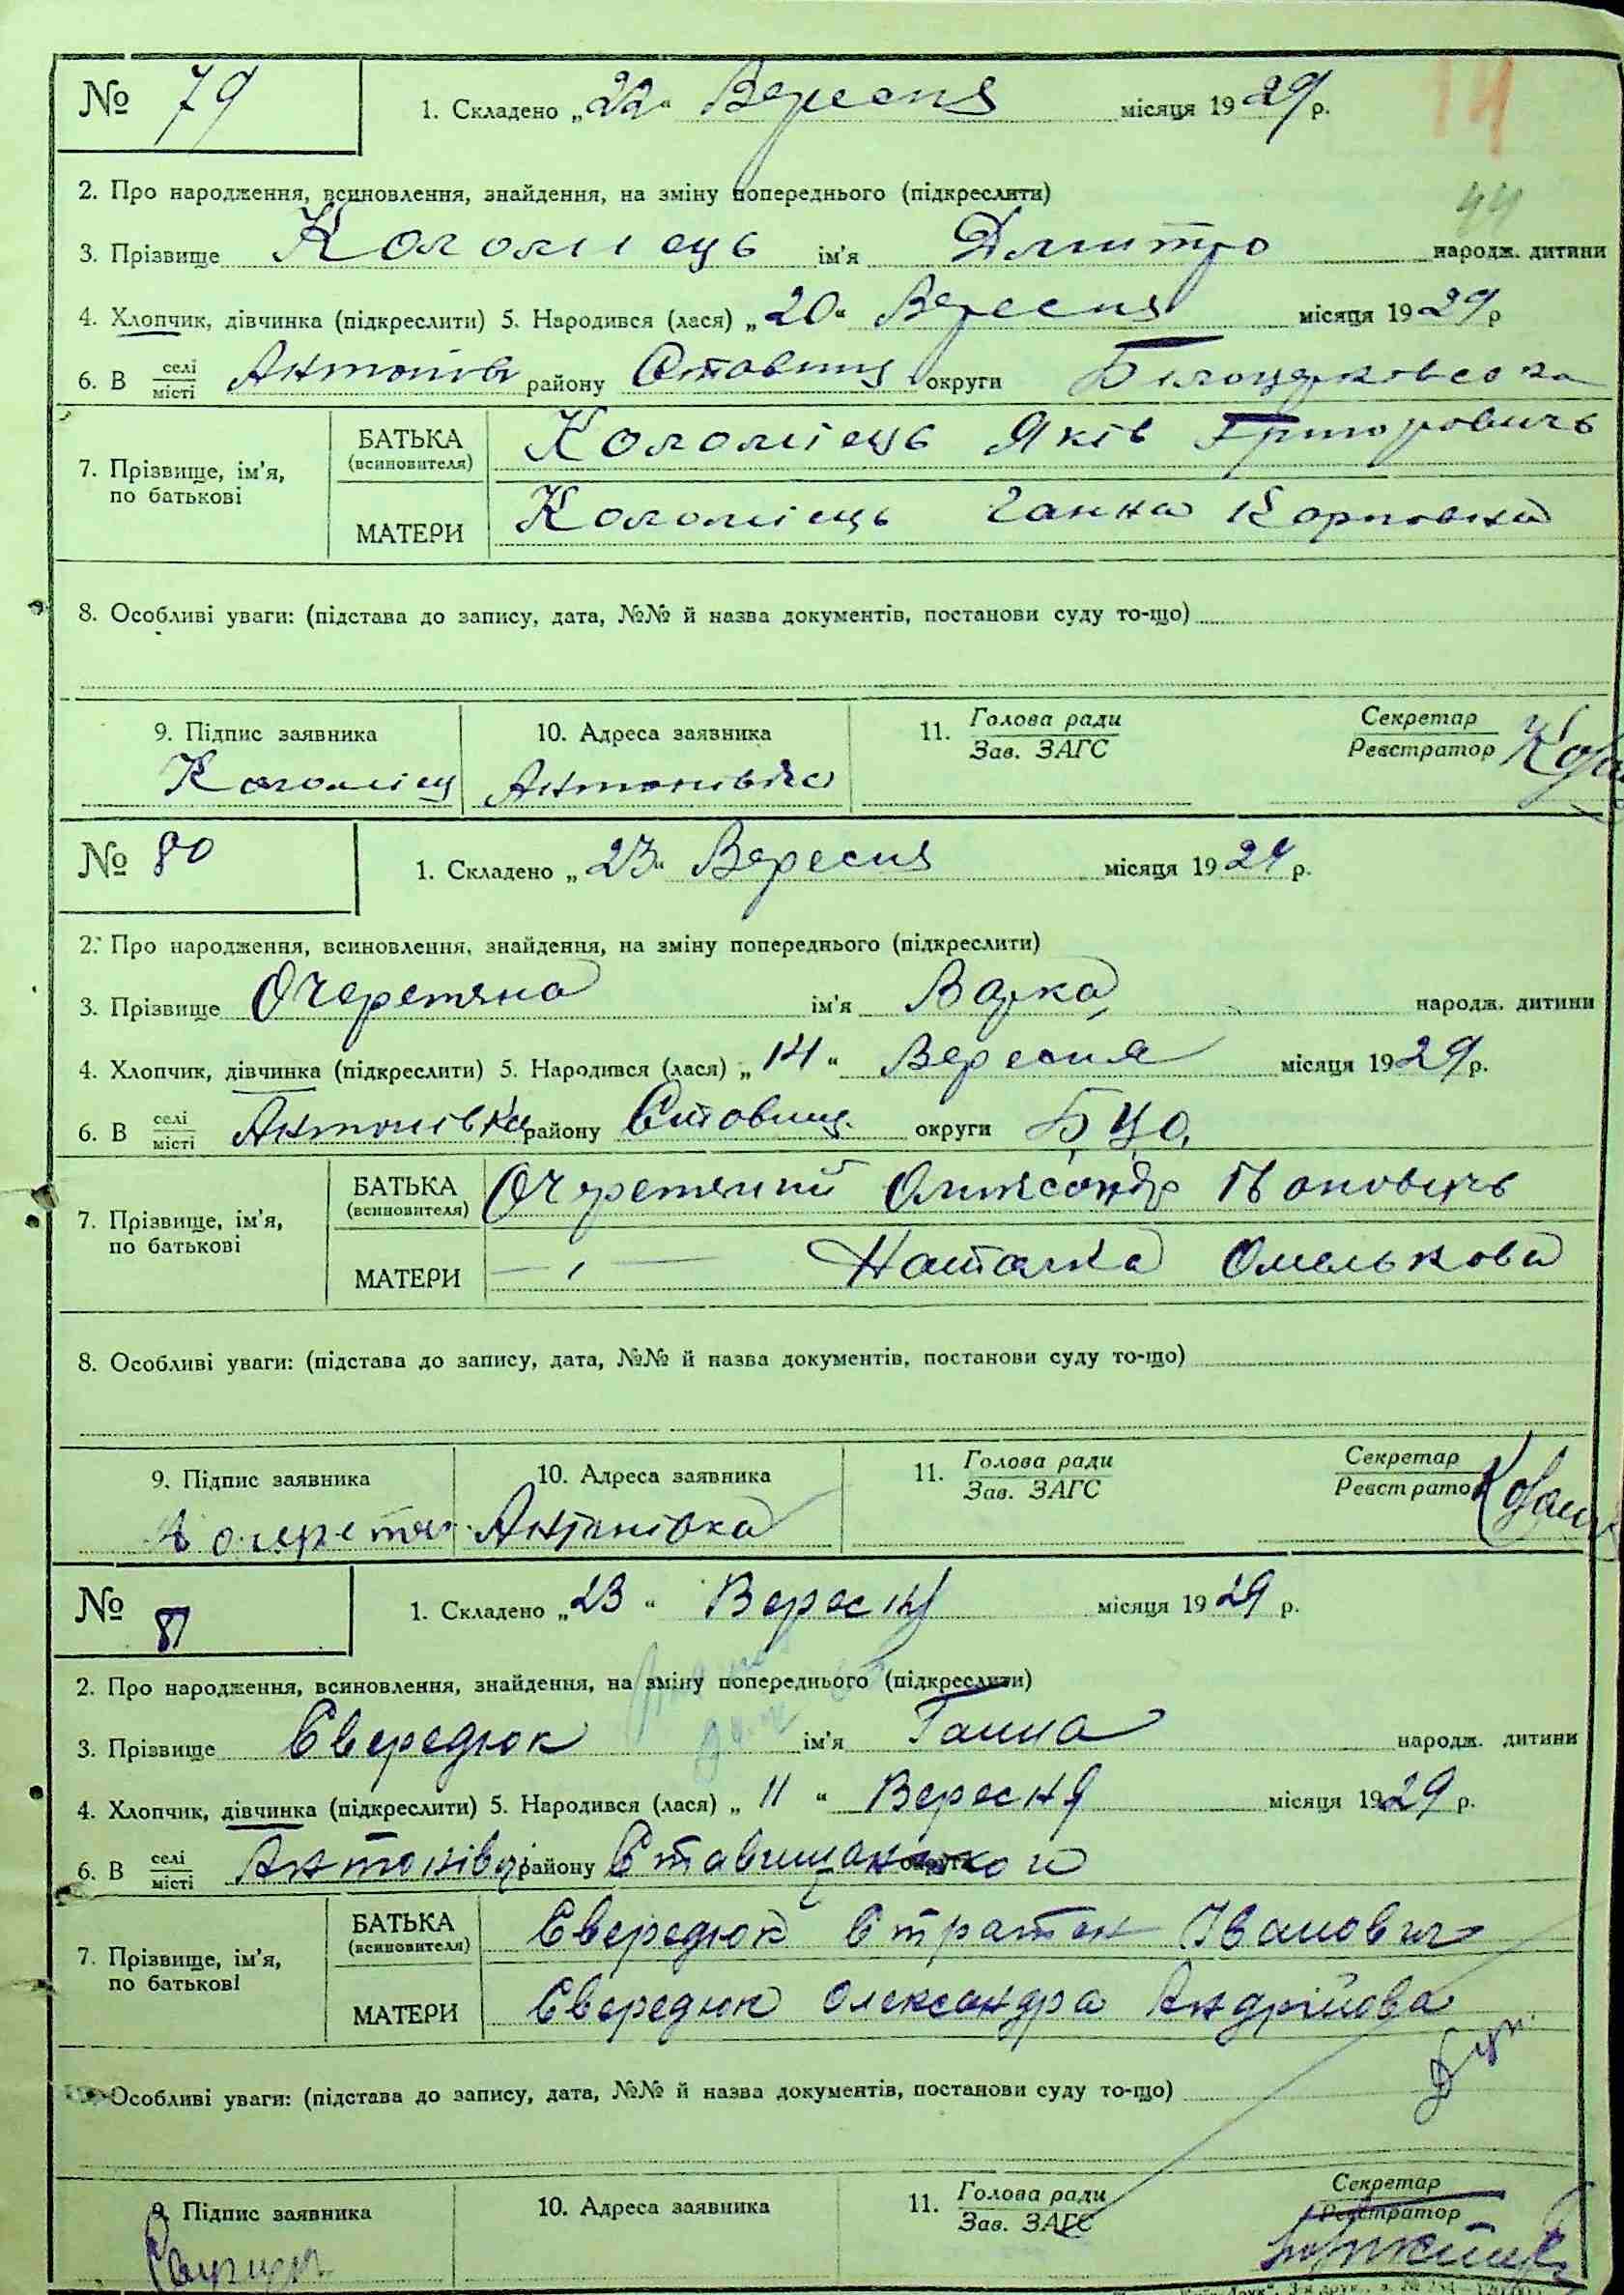 № 79 1. Складено „22“ Вересня місяця 1929 р. 14
44
2. Про народження, всиновлення, знайдення, на зміну попереднього (підкреслити)
3. Прізвище Коломієць ім'я Дмитро народж. дитини
4. Хлопчик, дівчинка (підкреслити) 5. Народився (лася) „20“ Вересня місяця 1929 р
6. В селі/місті району Ставищ округи
БАТЬКА (всиновителя) Коломієць Яків Григоровичь
7. Прізвище, ім'я, по батькові
МАТЕРИ Коломієць Ганна Карповна
8. Особливі уваги: (підстава до запису, дата, №№ й назва документів, постанови суду то-що)
9. Підпис заявника 10. Адреса заявника 11. Голова ради/Зав. ЗАГС Секретар/Реєстратор
Коломієц Антонівка
№ 80 1. Складено „23“ Вересня місяця 1929 р.
2. Про народження, всиновлення, знайдення, на зміну попереднього (підкреслити)
3. Прізвище Очеретяна ім'я Варка народж. дитини
4. Хлопчик, дівчинка (підкреслити) 5. Народився (лася) „14“ Вересня місяця 1929 р.
6. В селі/місті Антонівка району Ставищ. округи БЦо.
БАТЬКА (всиновителя) Очеретяний Івановичь
7. Прізвище, ім'я, по батькові
МАТЕРИ — „ — Наталка Омелькова
8. Особливі уваги: (підстава до запису, дата, №№ й назва документів, постанови суду то-що)
9. Підпис заявника 10. Адреса заявника 11. Голова ради/Зав. ЗАГС Секретар/Реєстратор
Антонівка
№ 81 1. Складено „23“ Вересня місяця 1929 р.
2. Про народження, всиновлення, знайдення, на зміну попереднього (підкреслити)
3. Прізвище Свередюк ім'я Ганна народж. дитини
4. Хлопчик, дівчинка (підкреслити) 5. Народився (лася) „11“ Вересня місяця 1929 р.
6. В селі/місті Антонівці району Ставищанського округи
БАТЬКА (всиновителя) Свередюк Стратон Іванович
7. Прізвище, ім'я, по батькові
МАТЕРИ Свередюк Олександра Андрійова
8. Особливі уваги: (підстава до запису, дата, №№ й назва документів, постанови суду то-що)
9. Підпис заявника 10. Адреса заявника 11. Голова ради/Зав. ЗАГС Секретар/Реєстратор